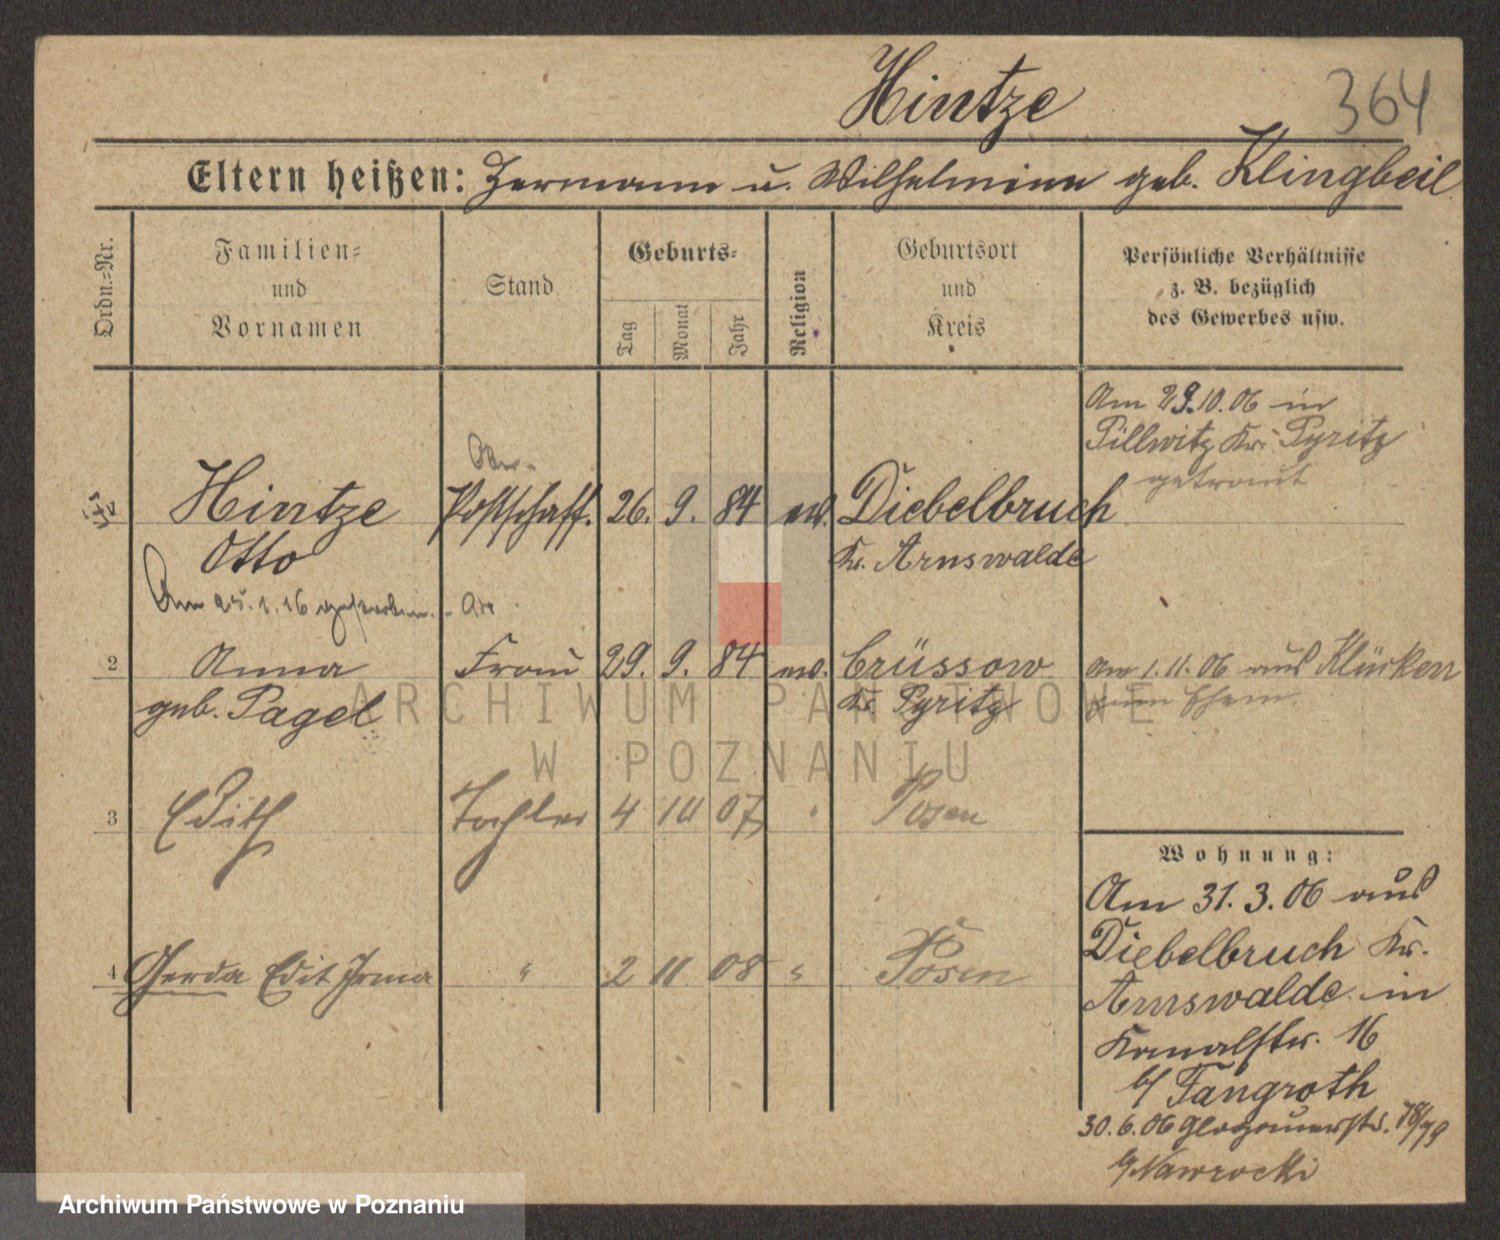 Hintze
364
Eltern heißen: Hermann u. Wilhelmine geb. Klingbeil
Ordn.-Nr.
Familien- und Vornamen
Stand
Geburts-
Tag
Monat
Jahr
Religion
Geburtsort und Kreis
Persönliche Verhältnisse
z. B. bezüglich
des Gewerbes usw.
Am 29.10.06 in
Pillwitz Kr. Pyritz
getraut
Ober-
Hintze Postschaff. 26. 9. 84 ev. Diebelbruch
Otto Kr. Arnswalde
Am 25.1.16 gestorben.
2 Anna Frau 29. 9. 84 ev. Crüssow am 1.11.06 aus Klücken
geb. Pagel Kr. Pyritz zum Ehem.
3 Edith Tochter 4 10 07 " Posen
Wohnung:
Am 31.3.06 aus
Diebelbruch Kr.
4 Gerda Edit Irma " 2 11 08 " Posen
Arnswalde in
Kanalstr. 16
b/ Fangroth
30.6.06 Glogauerstr. 78/79
b/ Nawrocki
ARCHIWUM PAŃSTWOWE
W POZNANIU
Archiwum Państwowe w Poznaniu